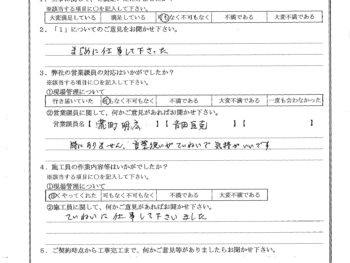 ※該当する項目に○を記入して下さい。
大変満足している 満足している 可もなく不可もなく 不満である 大変不満である
2．「1」についてのご意見をお聞かせ下さい。
まじめに仕事して下さった
3．弊社の営業議員の対応はいかがでしたか？
※該当する項目に○を記入して下さい。
①現場管理について
行き届いていた 可もなく不可もなく 不満である 大変不満である 一度も会わなかった
②営業議員に関して、何かご意見があればお聞かせ下さい。
営業議員名【 】【 】【 】
特にありません、言葉使いがていねいで気持がいいです
4．施工員の作業内容等はいかがでしたか？
※該当する項目に○を記入して下さい。
①現場管理について
良くやってくれた 可もなく不可もなく 不満である 大変不満である
②施工員に関して、何かご意見があればお聞かせ下さい。
ていねいに仕事して下さいました
5．ご契約時点から工事完工まで、何かご意見等がありましたらお聞かせ下さい。